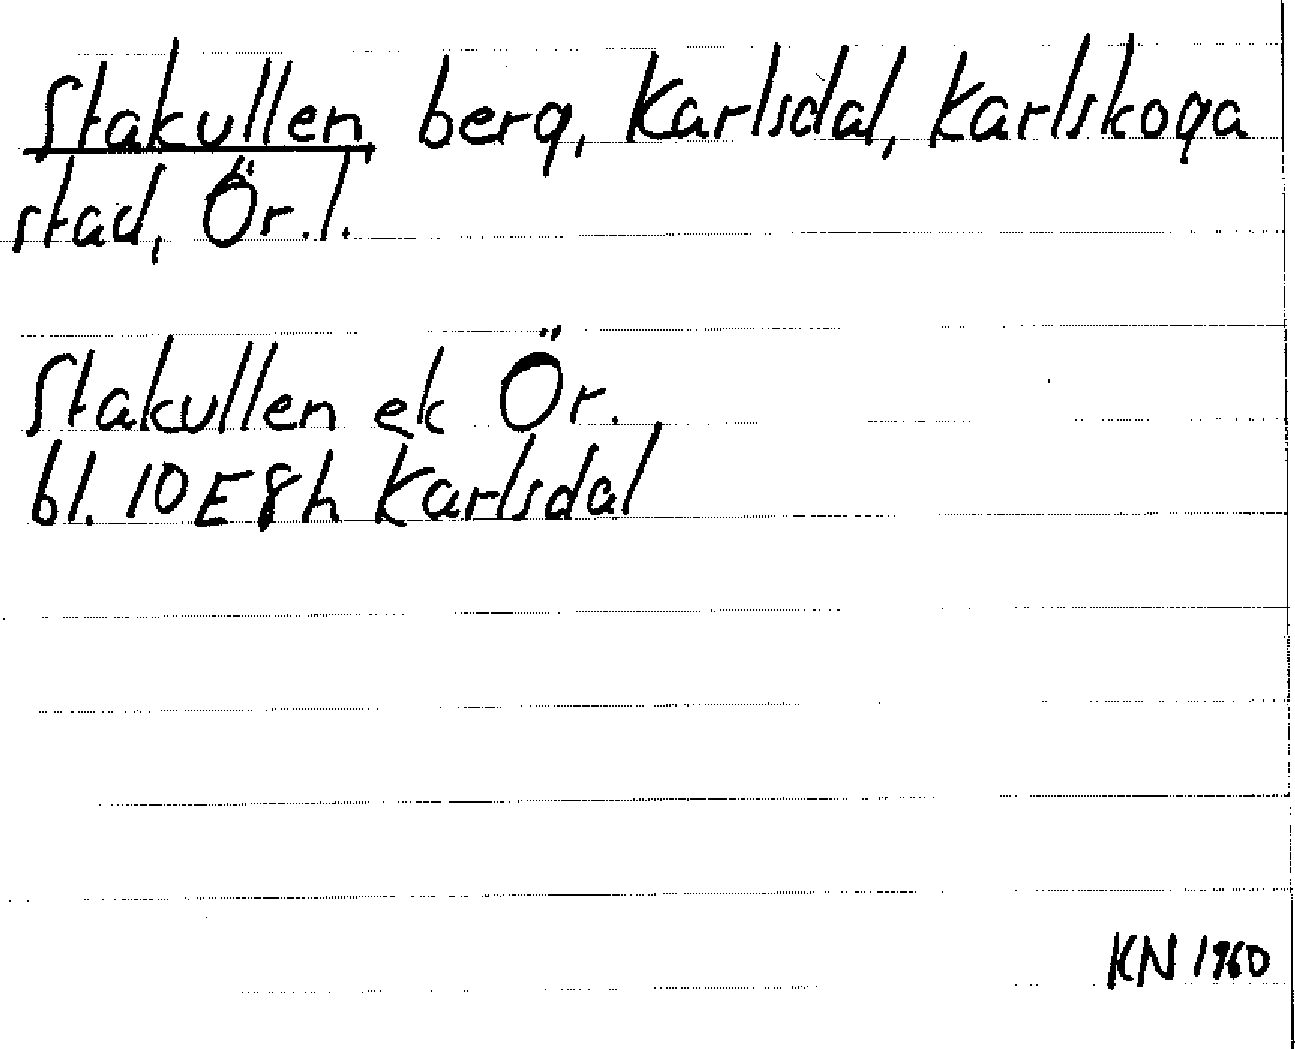 Stakullen berg, Karlsdal, Karlskoga
stad, Ör.l.
Stakullen ek Ör.
bl. 10E8h Karlsdal
KN 1960